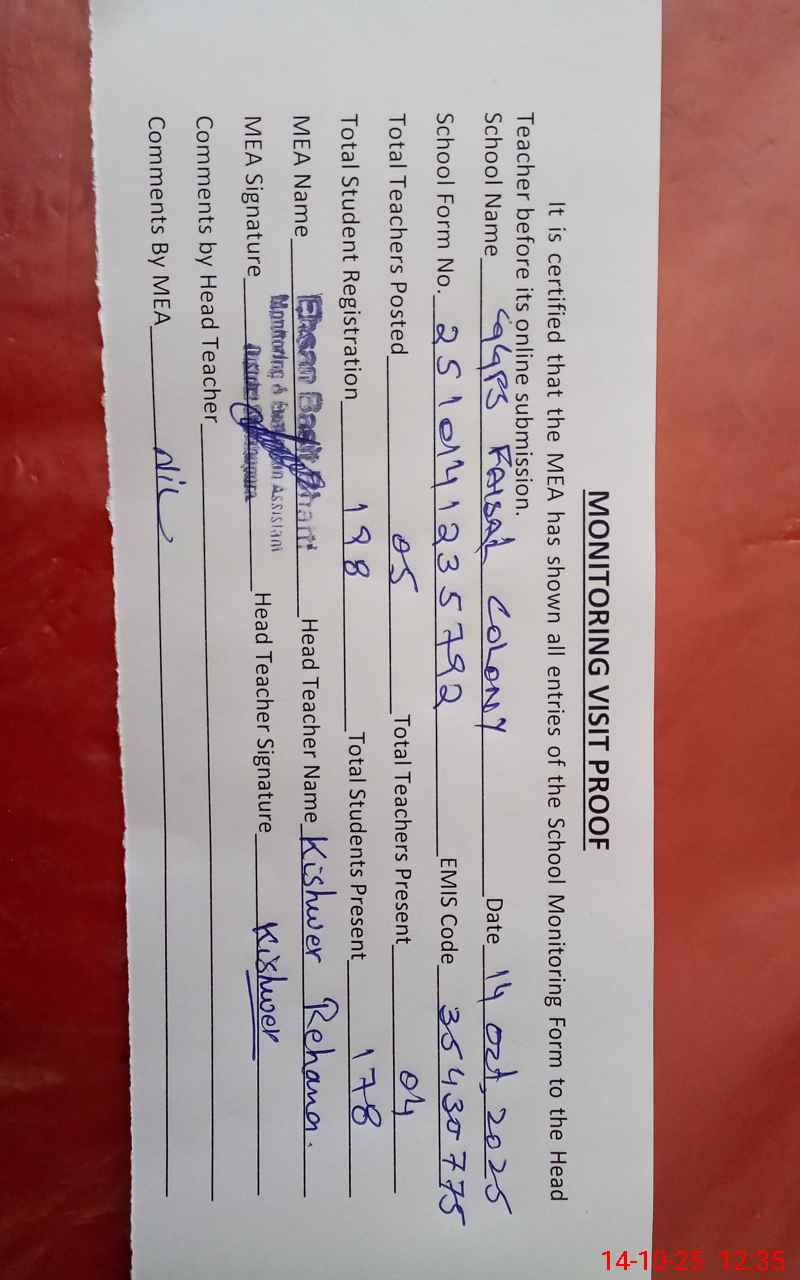 MONITORING VISIT PROOF
It is certified that the MEA has shown all entries of the School Monitoring Form to the Head
Teacher before its online submission.
School Name GGPS Faisal Colony Date 14 Oct, 2025
School Form No. 2510141235792 EMIS Code 35430775
Total Teachers Posted 05 Total Teachers Present 04
Total Student Registration 198 Total Students Present 178
MEA Name Ehsan Head Teacher Name Kishwer Rehana.
Monitoring & Assistant
MEA Signature District Head Teacher Signature Kishwer
Comments by Head Teacher
Comments By MEA Nil
14-10-25 12:35